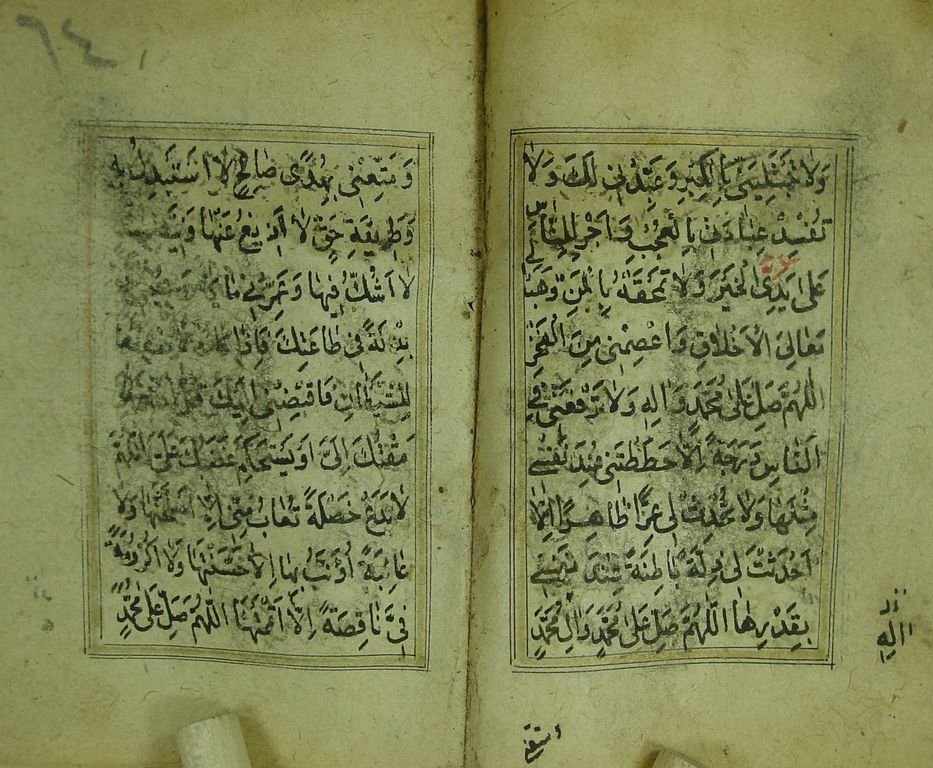 وَلَا تَبْتَلِيَنِّي بِالْكِبْرِ وَعَبِّدْنِي لَكَ وَلَا
تُفْسِدْ عِبَادَتِي بِالْعُجْبِ وَاَجْرِ لِلنَّاسِ
عَلَى يَدِيَ الْخَيْرَ وَلَا تَمْحَقْهُ بِالْمَنِّ وَهَبْ لِي
مَعَالِيَ الْاَخْلَاقِ وَاعْصِمْنِي مِنَ الْفَخْرِ
اَللّٰهُمَّ صَلِّ عَلٰى مُحَمَّدٍ وَآلِهِ وَلَا تَرْفَعْنِي فِي
النَّاسِ دَرَجَةً اِلَّا حَطَطْتَنِي عِنْدَ نَفْسِي
مِثْلَهَا وَلَا تُحْدِثْ لِي عِزًّا ظَاهِرًا اِلَّا
اَحْدَثْتَ لِي ذِلَّةً بَاطِنَةً عِنْدَ نَفْسِي
بِقَدْرِهَا اَللّٰهُمَّ صَلِّ عَلٰى مُحَمَّدٍ وَآلِ مُحَمَّدٍ
اله
٦٤
وَمَتِّعْنِي بِهُدًى صَالِحٍ لَا اَسْتَبْدِلُ بِهِ
وَطَرِيقَةِ حَقٍّ لَا اَزِيغُ عَنْهَا وَنِيَّةِ
لَا اَشُكُّ فِيهَا وَعَمِّرْنِي مَا
بِذْلَةً فِي طَاعَتِكَ فَاِذَا كَانَ
لِلشَّيْطَانِ فَاقْبِضْنِي اِلَيْكَ قَبْلَ
مَقْتُكَ اِلَيَّ اَوْ يَسْتَحْكِمَ غَضَبُكَ عَلَيَّ اَللّٰهُمَّ
لَا تَدَعْ خَصْلَةً تُعَابُ مِنِّي اِلَّا اَصْلَحْتَهَا وَلَا
عَائِبَةً اُؤَنَّبُ بِهَا اِلَّا حَسَّنْتَهَا وَلَا اُكْرُومَةً
فِيَّ نَاقِصَةً اِلَّا اَتْمَمْتَهَا اَللّٰهُمَّ صَلِّ عَلٰى مُحَمَّدٍ